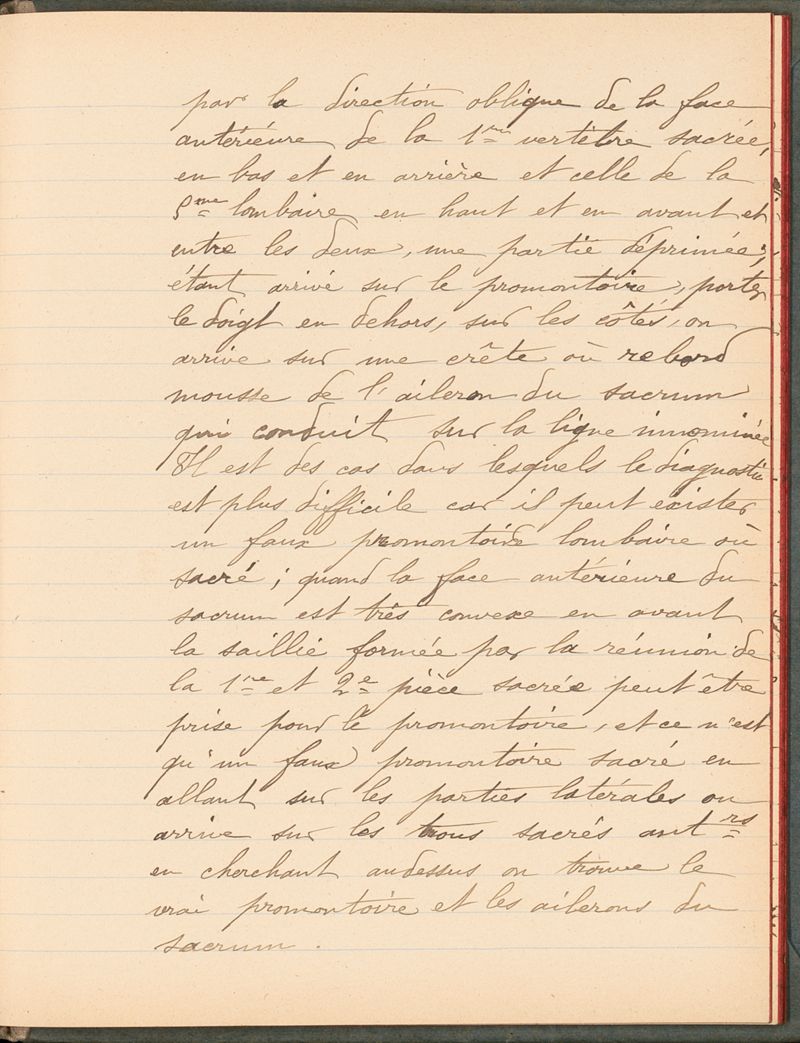 par la direction oblique de la face
antérieure de la 1ère vertèbre sacrée,
en bas et en arrière et celle de la
5me lombaire en haut et en avant et
entre les deux, une partie déprimée;
étant arrivé sur le promontoire, porter
le doigt en dehors, sur les côtés, on
arrive sur une crête ou rebord
mousse de l'aileron du sacrum
qui conduit sur la ligne innominée
Il est des cas dans lesquels le diagnostic
est plus difficile car il peut exister
un faux promontoire lombaire ou
sacré; quand la face antérieure du
sacrum est très convexe en avant
la saillie formée par la réunion de
la 1re et 2e pièce sacrée peut être
prise pour le promontoire, et ce n'est
qu'un faux promontoire sacré en
allant sur les parties latérales on
arrive sur les trous sacrés antrs
en cherchant audessus on trouve le
vrai promontoire et les ailerons du
sacrum.